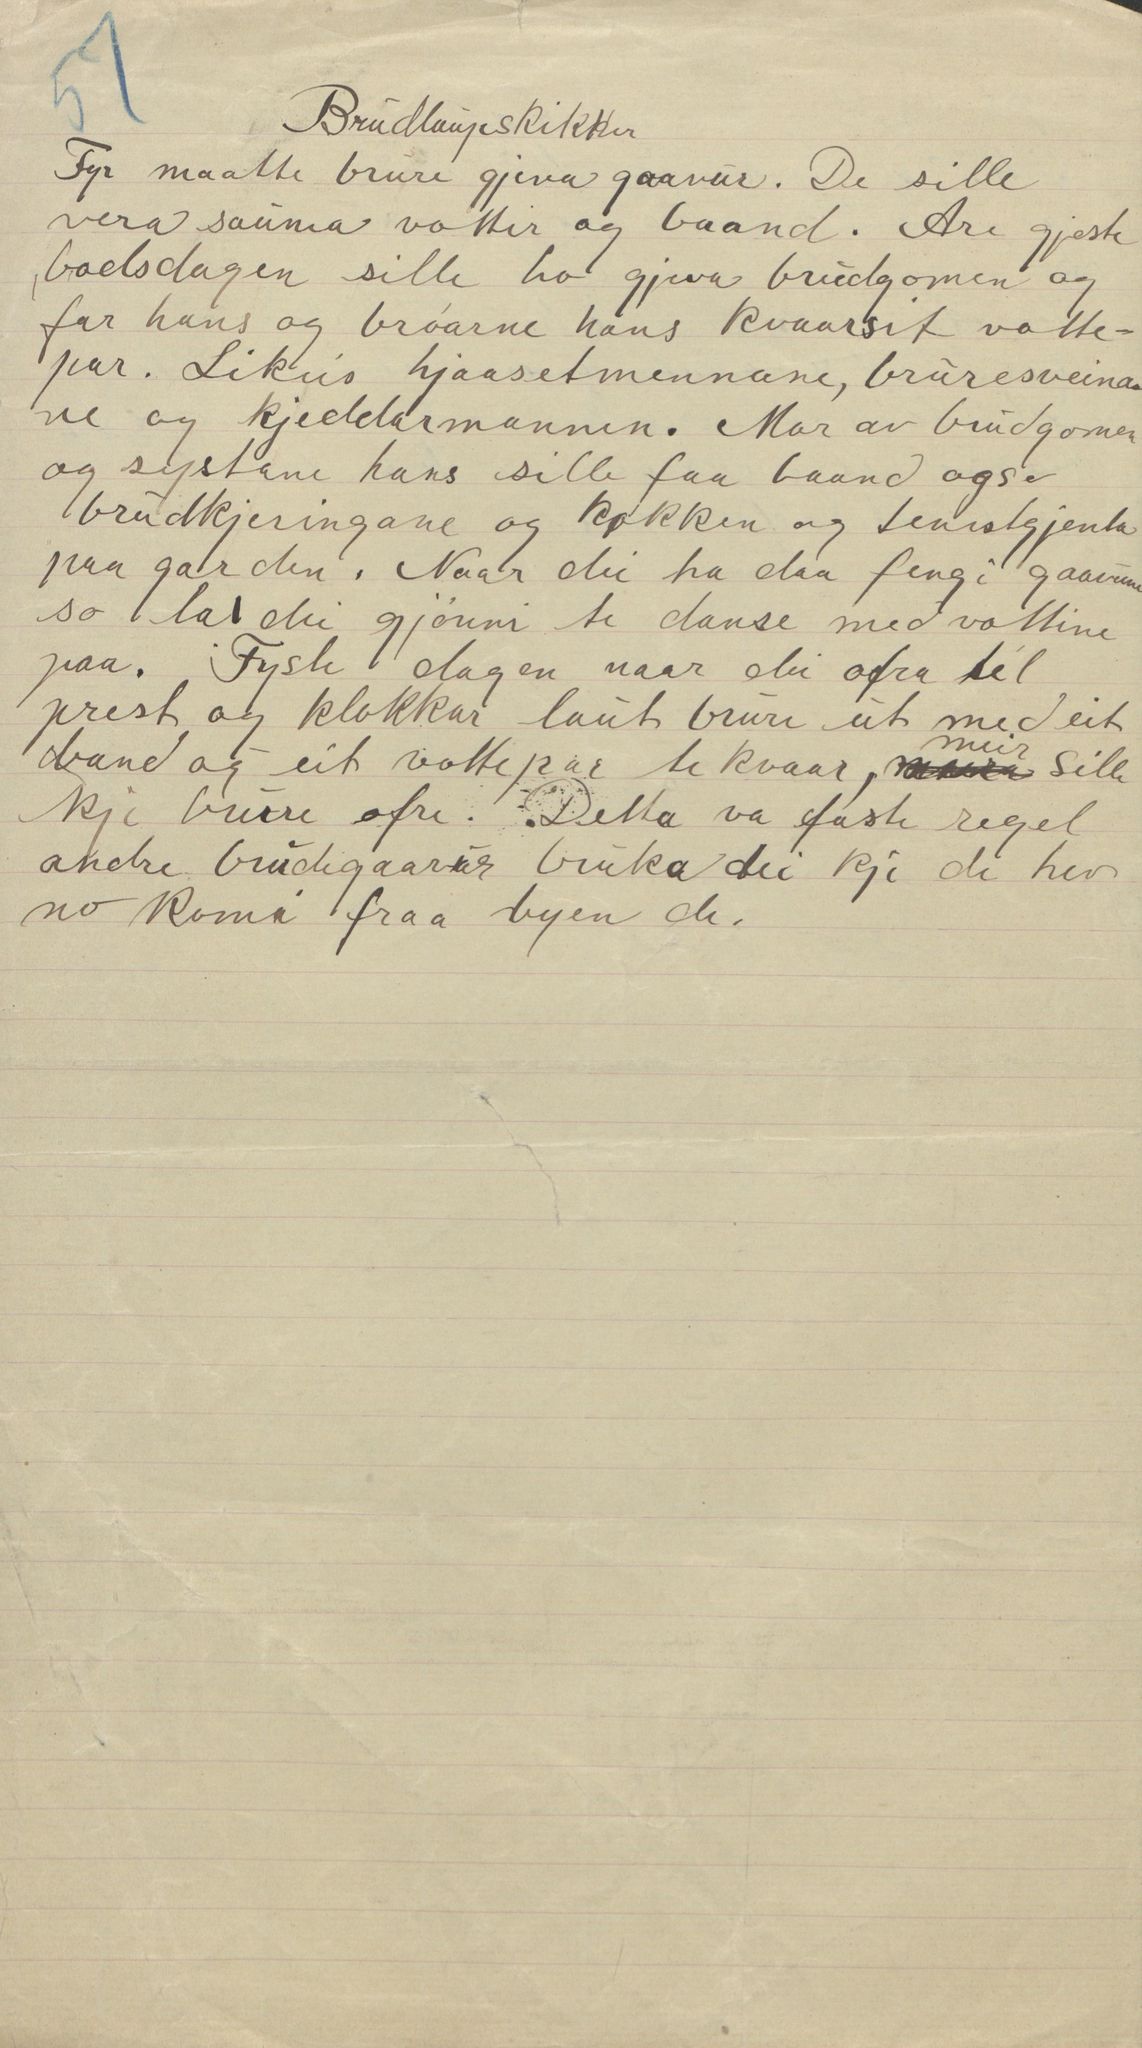 57
Brudlaupskikker
Fyr maatte brure gjeva gaavur. De sille
vera sauma vottir og baand. Are gjeste
bodsdagen sille ho gjeva brudgomen og
far hans og bróarne hans kvaarsit votte-
par. Likúo hjaasetmennane, bruresveina-
ne og kjeddarmannen. Mor av brudgomen
og systane hans sille faa baand ogso
brudkjeringane og kokken og tenestgjenta
paa garden. Naar dei ha daa fengi gaavune
so la dei gjónni te danse med vottine
paa. Fyste dagen naar dei ofra til
prest og klokkar laut brure ut med eit
band og eit vottepar te kvaar, meir sille
kje brure ofre. Detta va faste regel
andre brudegaavur bruka dei kje de hev
no komi fraa byen de.